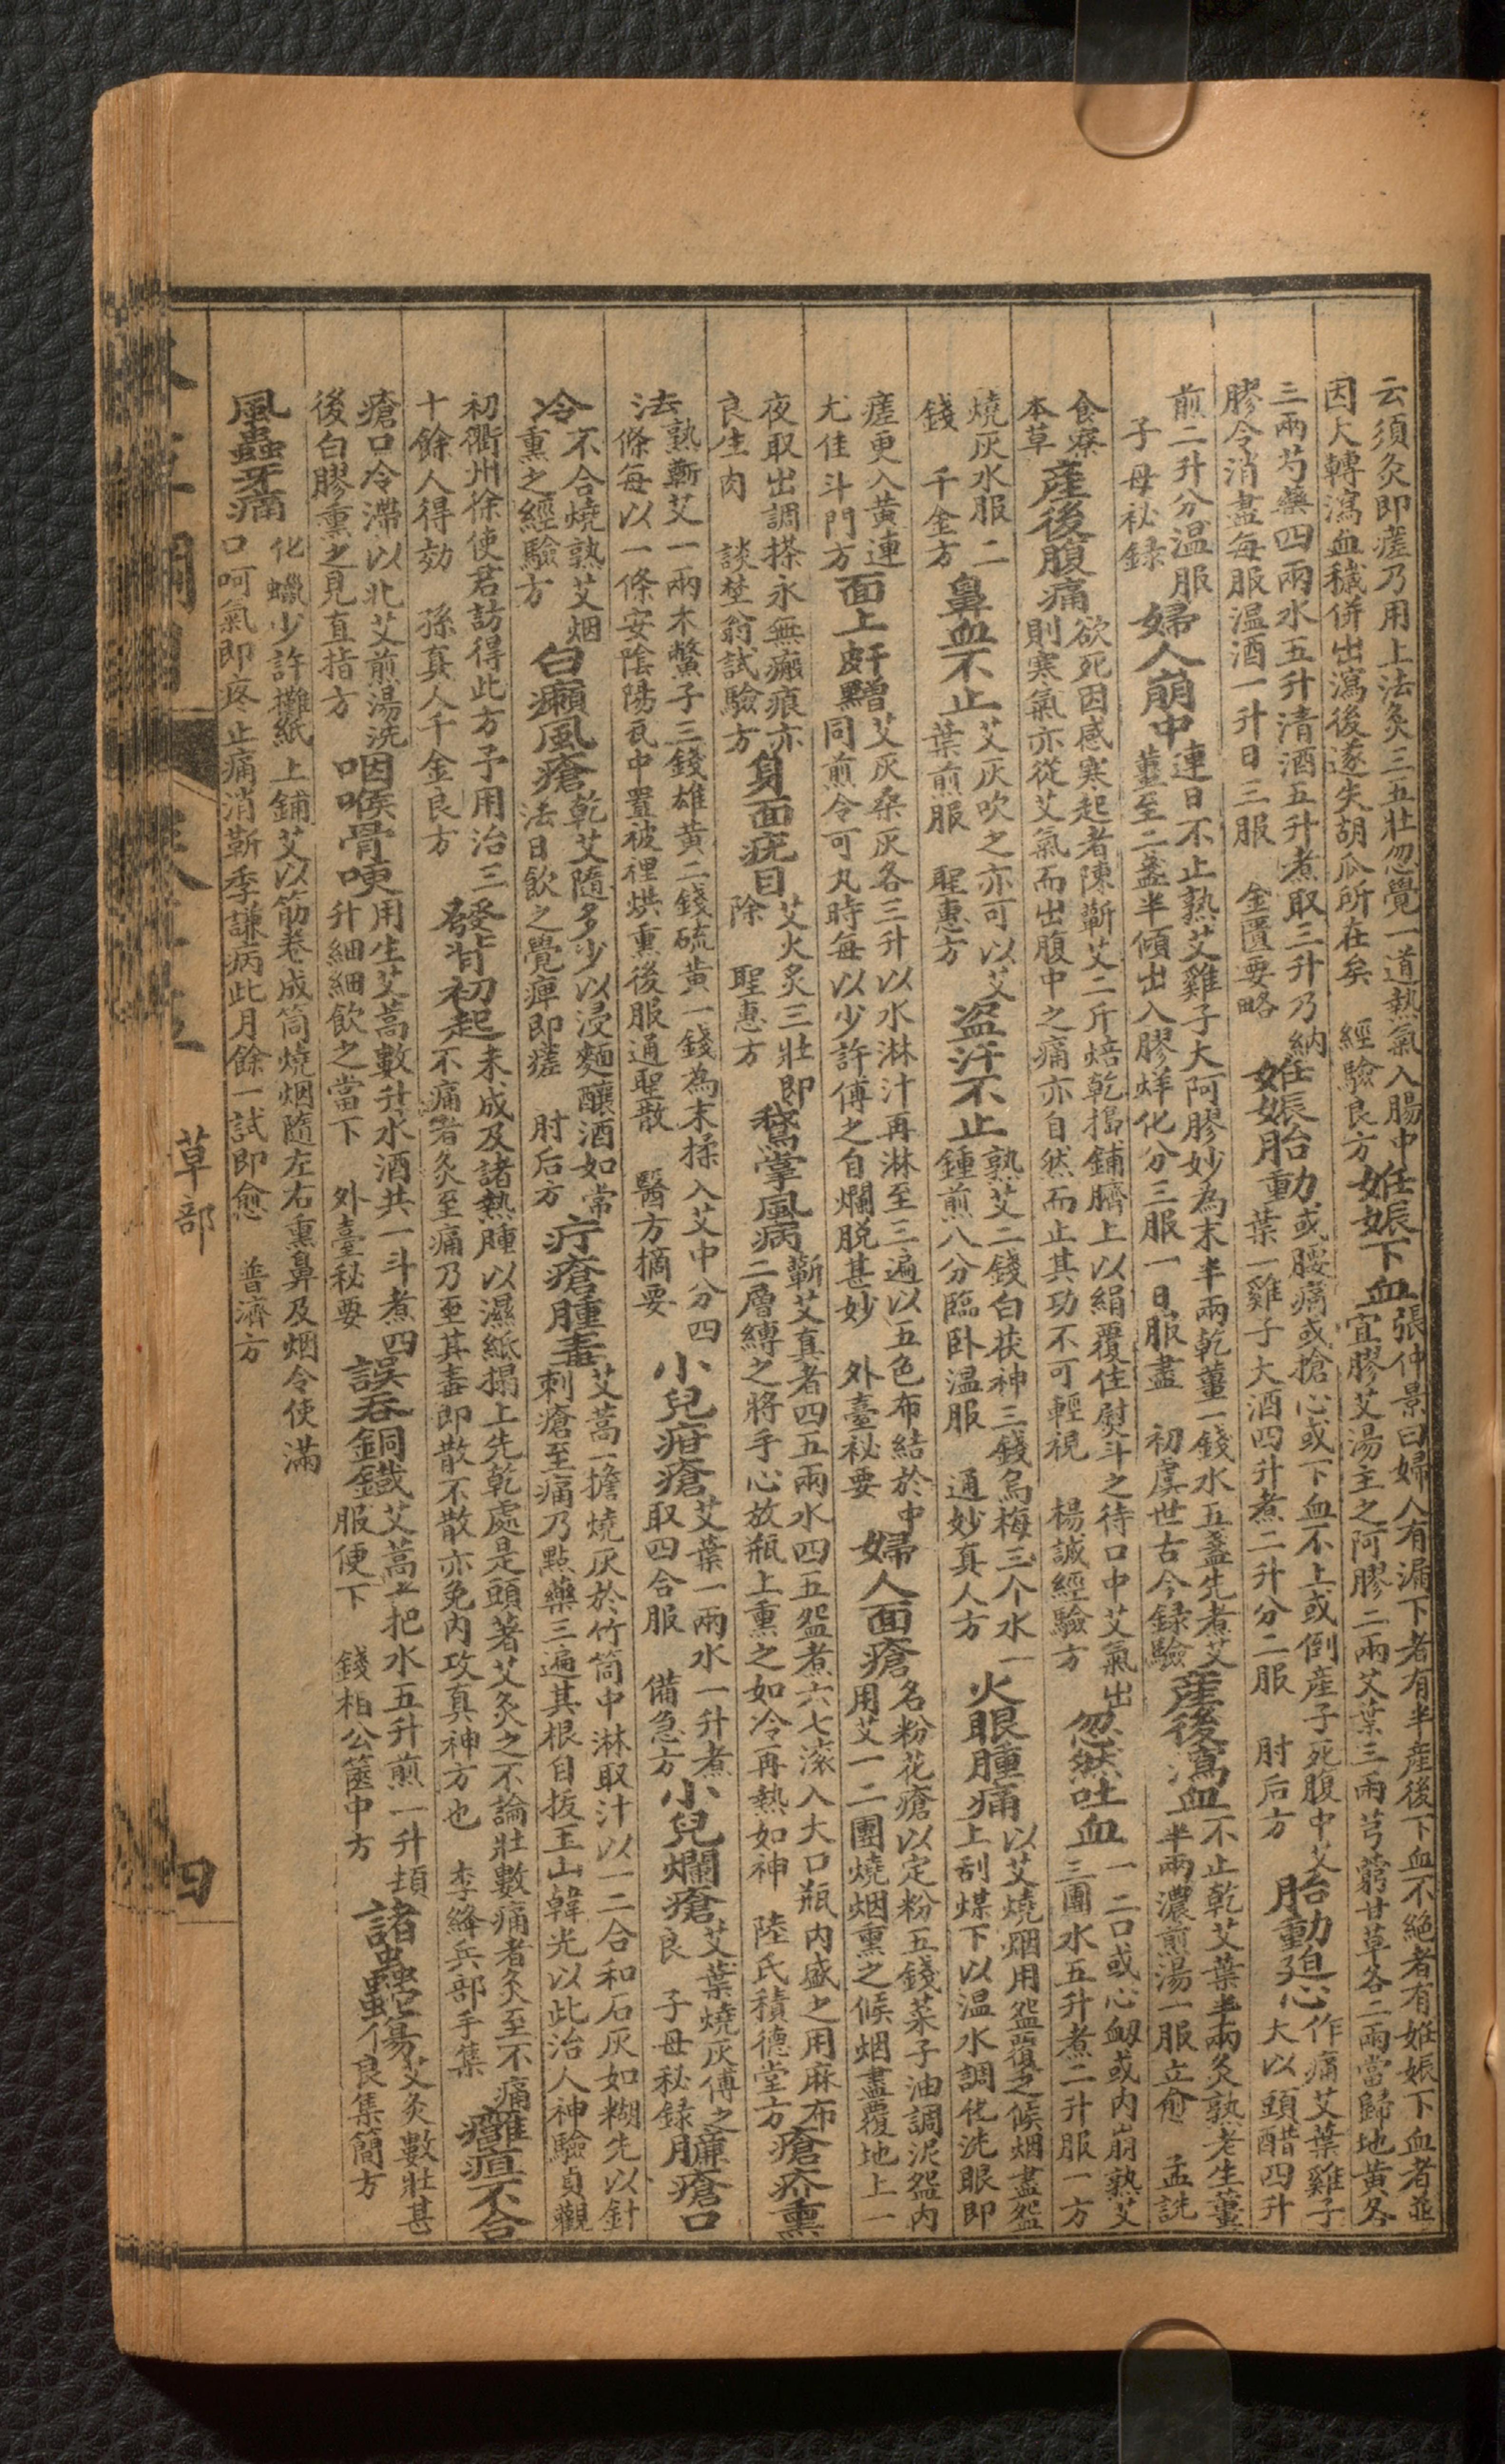 云須灸即瘥乃用上法灸三五壯忽覺一道熱氣入腸中
因大轉瀉血穢併出瀉後遂失胡瓜所在矣 經驗良方
妊娠下血
張仲景曰婦人有漏下者有半產後下血不絕者有妊娠下血者並
宜膠艾湯主之阿膠二兩艾葉三兩芎藭甘草各二兩當歸地黃各
三兩芍藥四兩水五升清酒五升煮取三升乃納
膠令消盡每服温酒一升日三服 金匱要略
妊娠胎動
或腰痛或搶心或下血不上或倒產子死腹中艾
葉一雞子大酒四升煮二升分二服 肘后方
胎動廹心
作痛艾葉雞子
大以頭醋四升
煎二升分温服
子母秘録
婦人崩中
連日不止熟艾雞子大阿膠炒為末半兩乾薑一錢水五盞先煮艾
薑至二盞半傾出入膠烊化分三服一日服盡 初虞世古今録驗
產後瀉血
不止乾艾葉半兩炙熟老生薑
半兩濃煎湯一服立愈 孟詵
食療
本草
產後腹痛
欲死因感寒起者陳蘄艾二斤焙乾搗鋪臍上以絹覆住熨斗之待口中艾氣出
則寒氣亦從艾氣而出腹中之痛亦自然而止其功不可輕視 楊誠經驗方
忽然吐血
一二口或心衂或内崩熟艾
三團水五升煮二升服一方
燒灰水服二
錢 千金方
鼻血不止
艾灰吹之亦可以艾
葉煎服 聖惠方
盗汗不止
熟艾二錢白茯神三錢烏梅三个水一
鍾煎八分臨卧温服 通妙真人方
火眼腫痛
以艾燒烟用盌覆之候烟盡盌
上刮煤下以温水調化洗眼即
瘥更入黄連
尤佳斗門方
面上皯䵳
艾灰桑灰各三升以水淋汁再淋至三遍以五色布結於中
同煎令可丸時每以少許傅之自爛脱甚妙 外臺秘要
婦人面瘡
名粉花瘡以定粉五錢菜子油調泥盌内
用艾一二團燒烟熏之候烟盡覆地上一
夜取出調搽永無瘢痕亦
良生肉 談埜翁試驗方
身面疣目
艾火炙三壯即
除 聖惠方
鵞掌風病
蘄艾真者四五兩水四五盌煮六七滚入大口瓶内盛之用麻布
二層縛之將手心放瓶上熏之如冷再熱如神 陸氏積德堂方
瘡疥熏
法
熟蘄艾一兩木鱉子三錢雄黄二錢硫黄一錢為末揉入艾中分四
條每以一條安陰陽瓦中置被裡烘熏後服通聖散 醫方摘要
小兒疳瘡
艾葉一兩水一升煮
取四合服 備急方
小兒爛瘡
艾葉燒灰傅之
良 子母秘録
臁瘡口
冷
不合燒熟艾烟
熏之經驗方
白癩風瘡
乾艾隨多少以浸麵釀酒如常
法日飲之覺痺即瘥 肘后方
疔瘡腫毒
艾蒿一擔燒灰於竹筒中淋取汁以一二合和石灰如糊先以針
刺瘡至痛乃點藥三遍其根自拔玉山韓光以此治人神驗貞觀
初衢州徐使君訪得此方予用治三
十餘人得効 孫真人千金良方
發背初起
未成及諸熱腫以濕紙搨上先乾處是頭著艾灸之不論壯數痛者灸至不痛
不痛者灸至痛乃至其毒即散不散亦免内攻真神方也 李絳兵部手集
癰疽不合
瘡口冷滯以北艾煎湯洗
後白膠熏之見直指方
咽喉骨哽
用生艾蒿數升水酒共一斗煮四
升細細飲之當下 外臺秘要
誤吞銅錢
艾蒿一把水五升煎一升頓
服便下 錢相公篋中方
諸蟲蛇傷
艾灸數壯甚
良集簡方
風蟲牙痛
化蠟少許攤紙上鋪艾以筯卷成筒燒烟隨左右熏鼻及烟令使滿
口呵氣即疼止痛消靳季謙病此月餘一試即愈 普濟方
草部
四